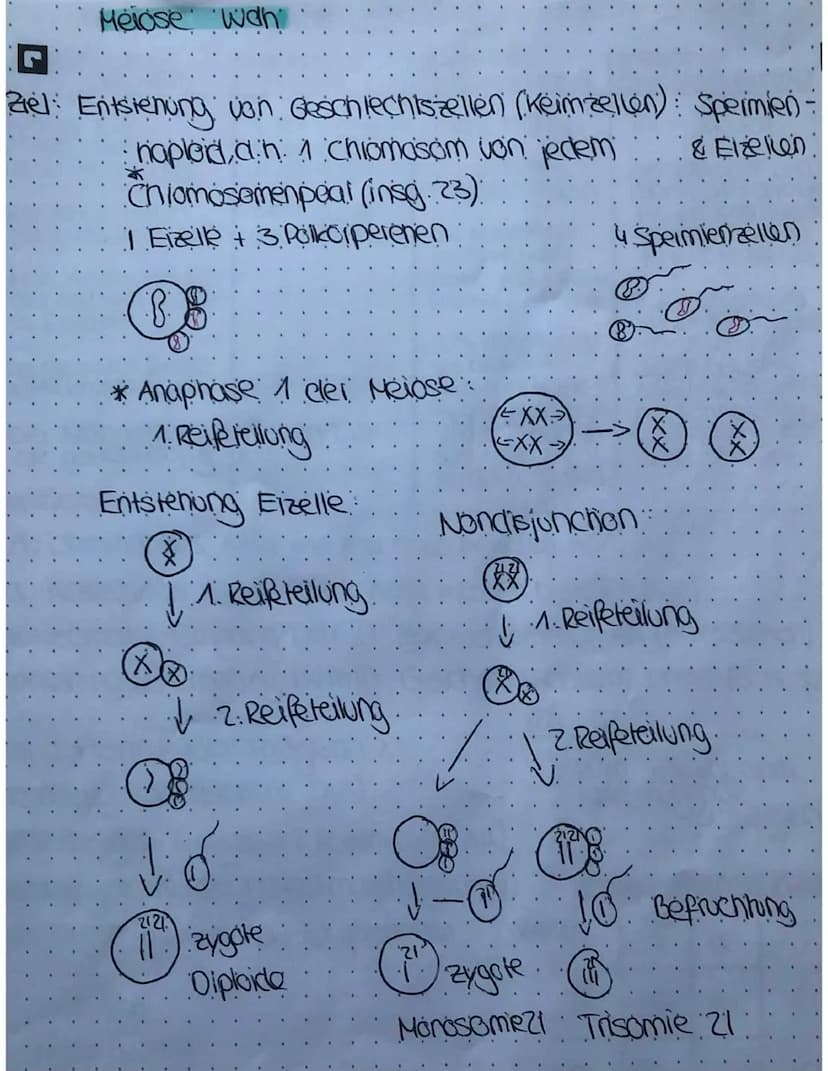 Meiose Wdh.
Ziel: Entstehung von Geschlechtszellen (Keimzellen): Spermien-
& Eizellen
haploid, d.h. 1 Chromosom von jedem
* Chromosomenpaar (insg. 23)
1 Eizelle + 3 Polkörperchen
4 Spermienzellen
* Anaphase 1 der Meiose:
1. Reifeteilung
XX
XX
X
X
X
X
Entstehung Eizelle:
Nondisjunction:
X
21 21
XX
1. Reifeteilung
1. Reifeteilung
X X
X X
2. Reifeteilung
2. Reifeteilung
21 21
Befruchtung
21 21
Zygote
Diploide
21
Zygote
Monosomie 21
Trisomie 21